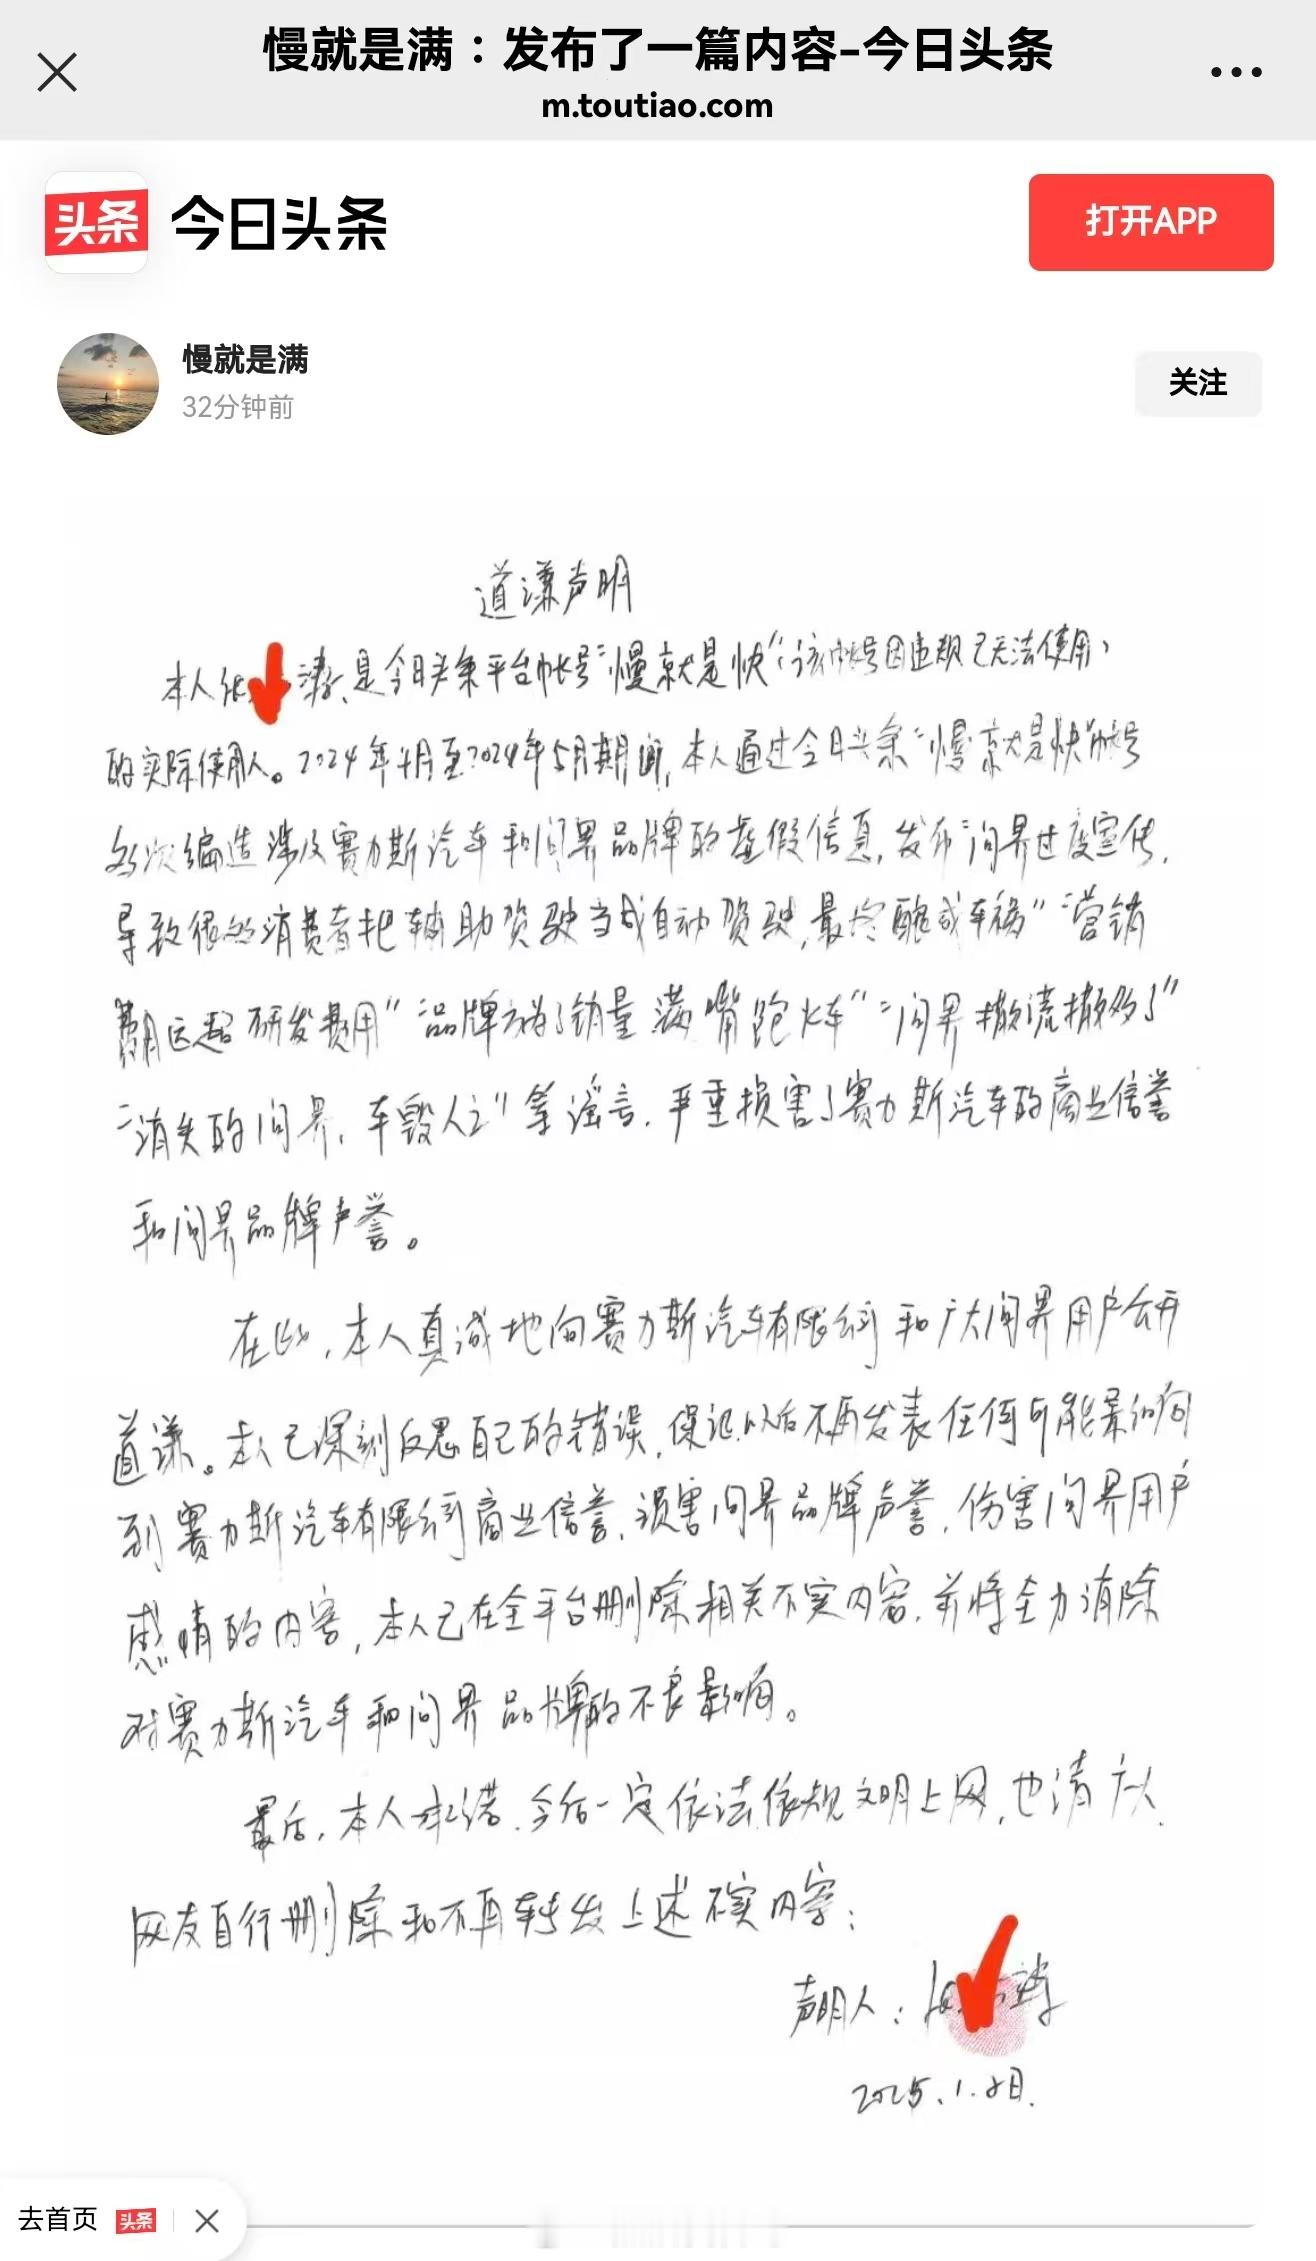 慢就是满：发布了一篇内容-今日头条
m.toutiao.com
头条 今日头条
打开APP
慢就是满
32分钟前
关注
道谦声明
本人 是今日头条平台帐号“慢就是快”（该帐号因违规已无法使用）
的实际使用人。2024年4月至2024年5月期间，本人通过今日头条“慢就是快”帐号
多次编造涉及赛力斯汽车和问界品牌的虚假信息，发布“问界过度宣传，
导致很多消费者把辅助驾驶当成自动驾驶，最终酿成车祸”“营销
费用远超研发费用”“品牌方为了销量满嘴跑火车”“问界撤流撤多了”
“消失的问界，车毁人亡”等谣言，严重损害了赛力斯汽车的商业信誉
和问界品牌声誉。
在此，本人真诚地向赛力斯汽车有限公司和广大问界用户公开
道谦。本人已深刻反思自己的错误，保证以后不再发表任何可能影响
到赛力斯汽车有限公司商业信誉、损害问界品牌声誉，伤害问界用户
感情的内容，本人已在全平台删除相关不实内容，并将全力消除
对赛力斯汽车和问界品牌的不良影响。
最后，本人承诺，今后一定依法依规文明上网，也请广大
网友自行删除和不再转发上述不实内容；
声明人：
2025.1.8日.
去首页 头条